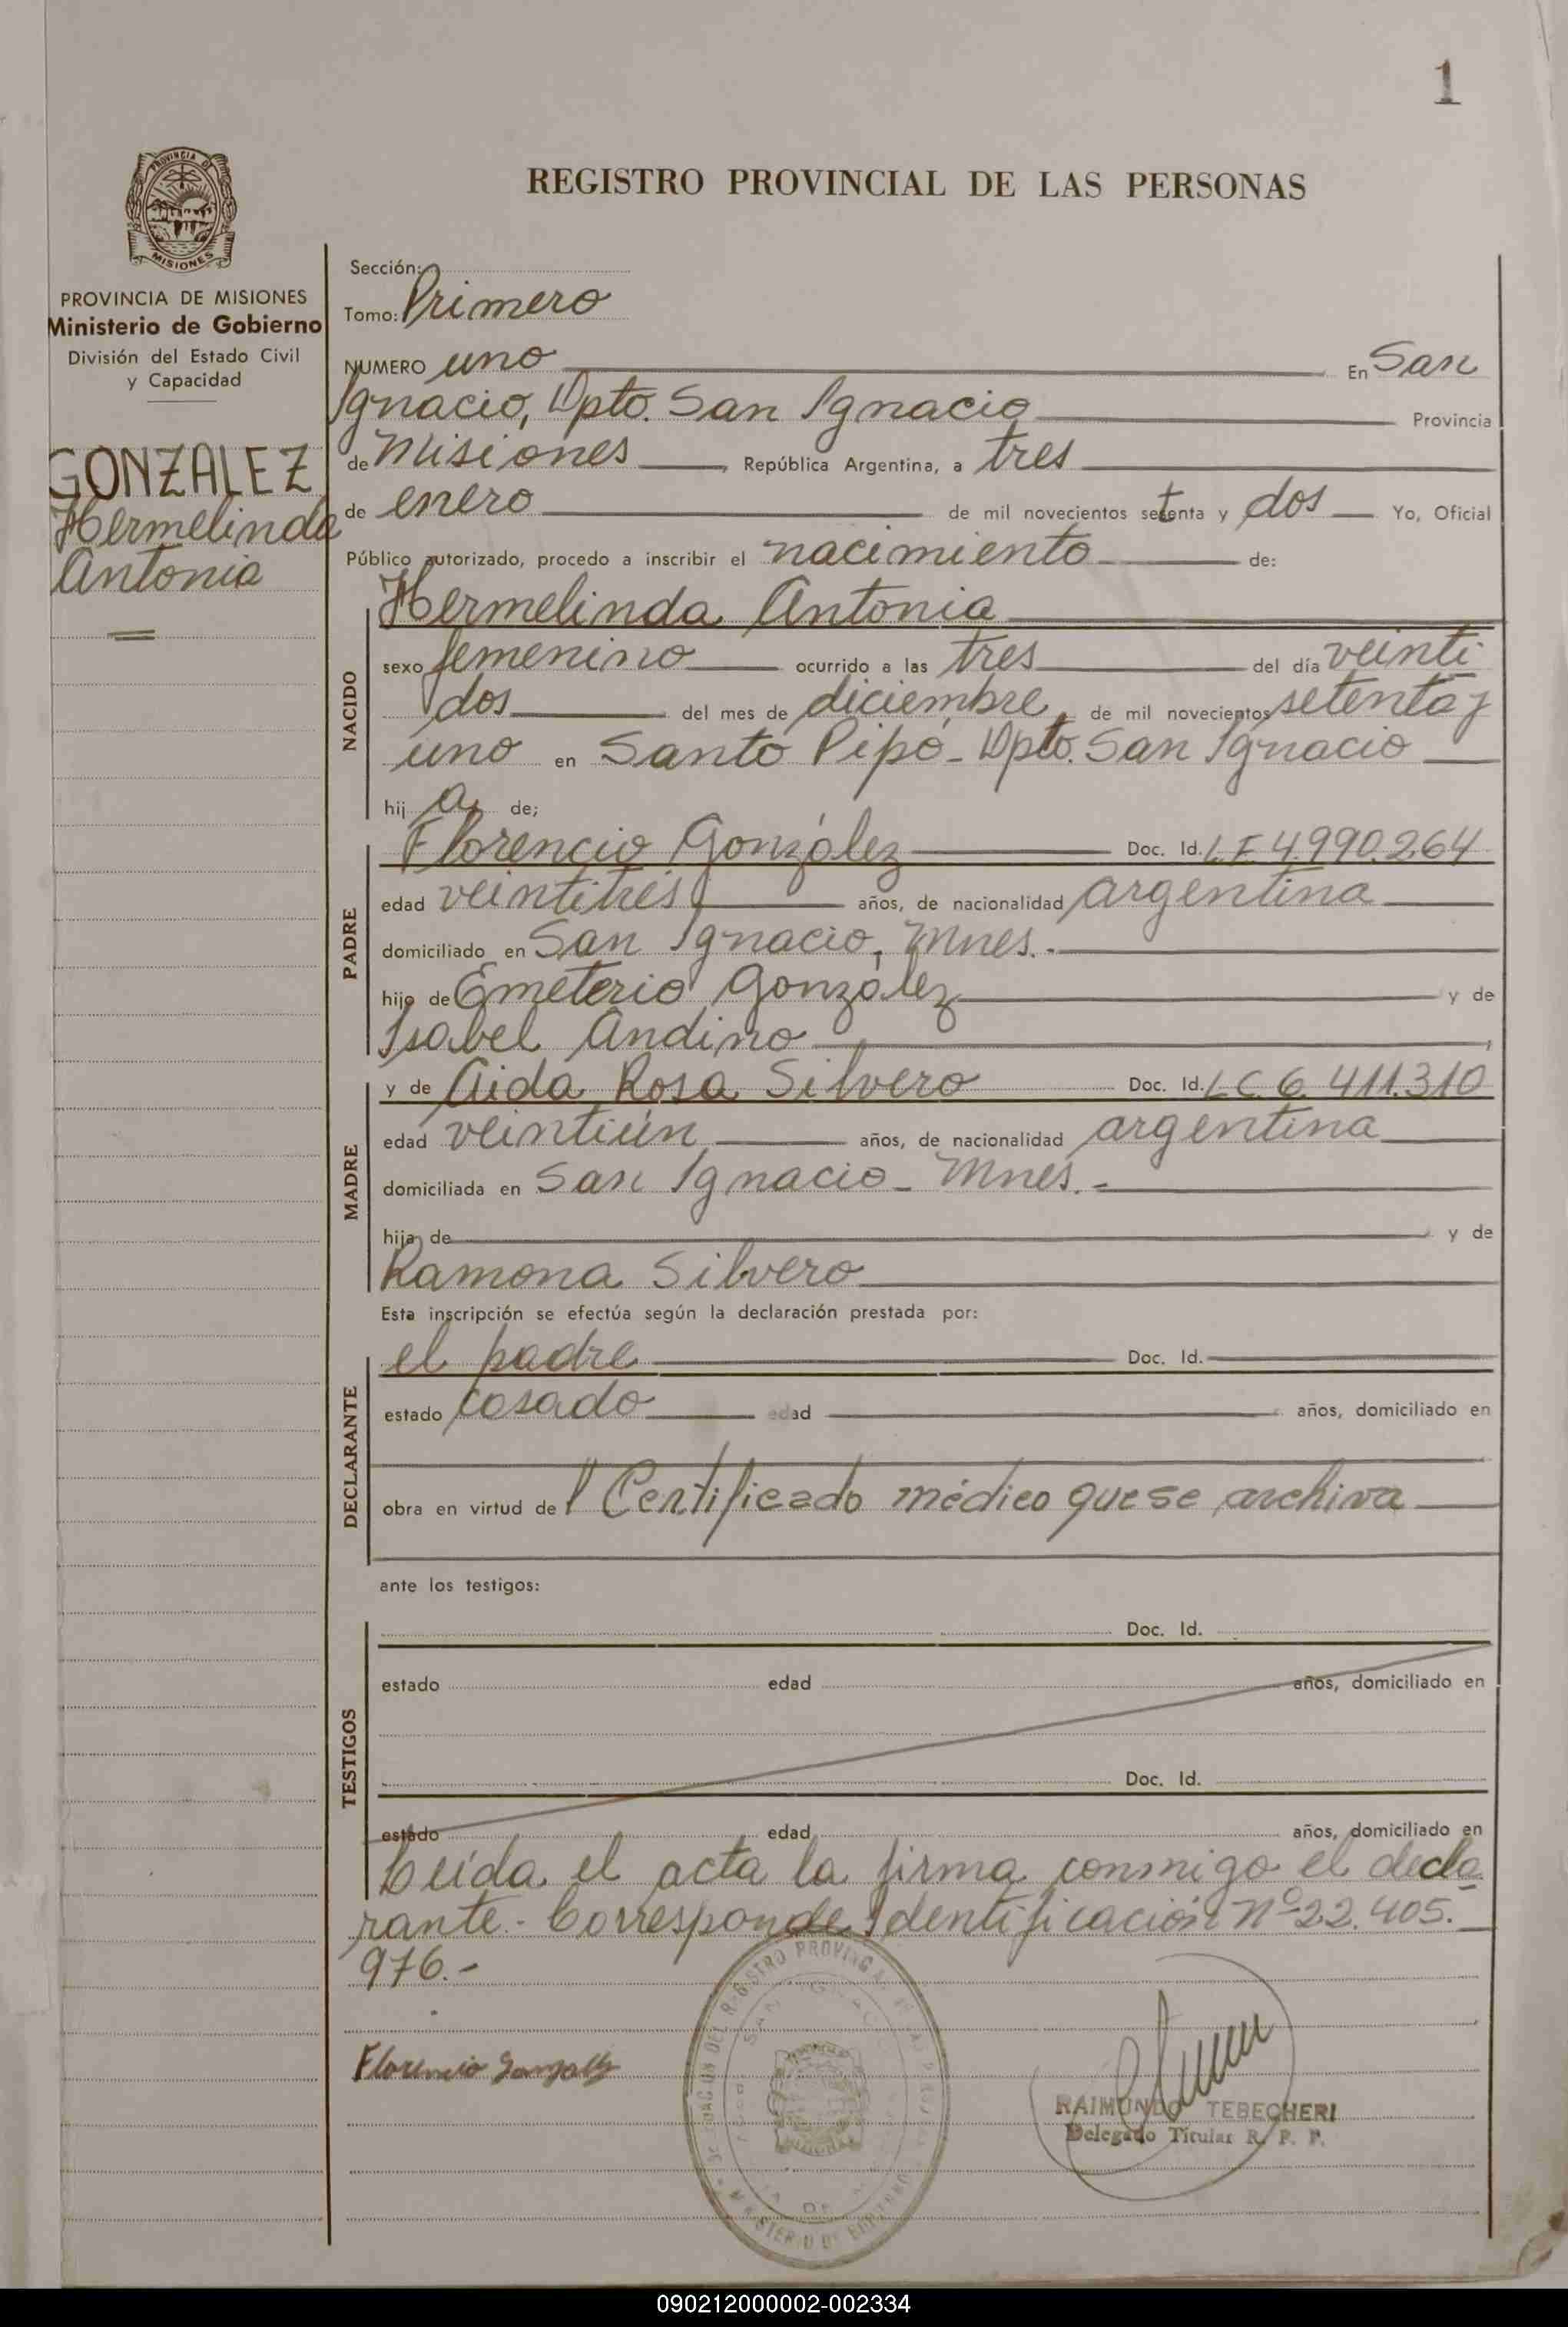 1
PROVINCIA DE
MISIONES
REGISTRO PROVINCIAL DE LAS PERSONAS
PROVINCIA DE MISIONES
Ministerio de Gobierno
División del Estado Civil
y Capacidad
GONZALEZ
Hermelinda
Antonia
Sección:
Tomo: Primero
NUMERO uno En San
Ignacio, Dpto. San Ignacio Provincia
de Misiones, República Argentina, a tres
de enero de mil novecientos setenta y dos Yo, Oficial
Público autorizado, procedo a inscribir el nacimiento de:
NACIDO
Hermelinda Antonia
sexo femenino ocurrido a las tres del día veinti
dos del mes de diciembre, de mil novecientos setenta y
uno en Santo Pipó - Dpto. San Ignacio
hij a de;
PADRE
Florencio González Doc. Id. L E 4.990.264
edad veintitrés años, de nacionalidad argentina
domiciliado en San Ignacio, Mnes.-
hijo de Emeterio González y de
Isabel Andino,
MADRE
y de Aida Rosa Silvero Doc. Id. L C. 6.411.310
edad veintiún años, de nacionalidad argentina
domiciliada en San Ignacio - Mnes.-
hija de y de
Ramona Silvero
Esta inscripción se efectúa según la declaración prestada por:
DECLARANTE
el padre Doc. Id.
estado casado edad años, domiciliado en
obra en virtud del Certificado médico que se archiva
ante los testigos:
TESTIGOS
Doc. Id.
estado edad años, domiciliado en
Doc. Id.
estado edad años, domiciliado en
Leída el acta la firma conmigo el decla
rante.- Corresponde Identificación Nº 22.405.
976.-
Florencio Gonzalez
RAIMUNDO TEBECHERI
Delegado Titular R. P. P.
090212000002-002334